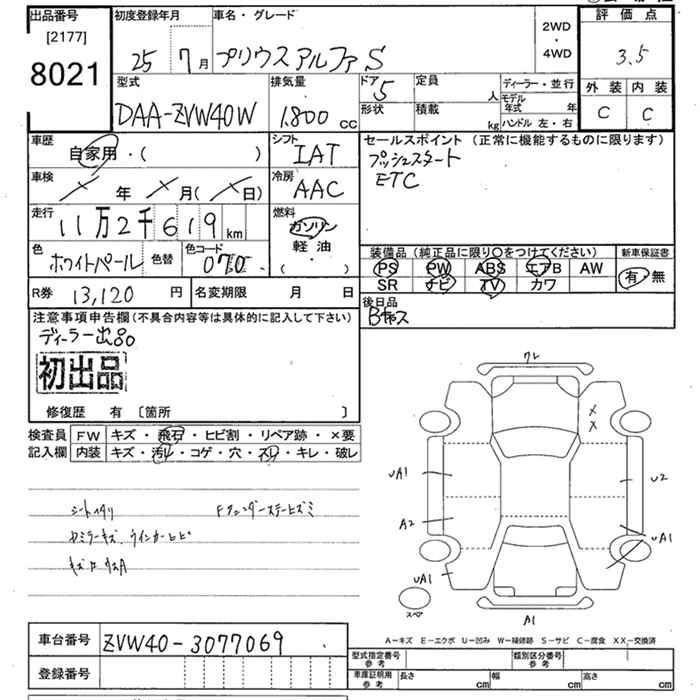 出品番号
[2177]
8021
初度登録年月
25 7 月
車名・グレード
プリウスアルファS
2WD
・
4WD
評価点
3.5
外装 内装
C C
型式
DAA-ZVW40W
排気量
1.800 cc
ドア 5
定員 人
形状
積載 kg
ディーラー・並行
モデル年式 年
ハンドル 左・右
車歴
自家用・( )
シフト
IAT
セールスポイント (正常に機能するものに限ります)
プッシュスタート
ETC
車検
年 月( 日)
冷房
AAC
走行
11万2千619 km
燃料
ガソリン
軽油
( ・ )
色
ホワイトパール
色替
色コード
070
装備品 (純正品に限り○をつけてください)
PS PW ABS エアB AW
SR ナビ TV カワ
新車保証書
有・無
R券 13,120 円
名変期限 月 日
後日品
注意事項申告欄(不具合内容等は具体的に記入して下さい)
ディーラー出品
初出品
修復歴 有 〔箇所 〕
検査員記入欄
FW キズ・飛石・ヒビ割・リペア跡・×要
内装 キズ・汚れ・コゲ・穴・スレ・キレ・破レ
Fフェンダーステーヒズミ
ワレ
X
X
UA1
U2
A2
UA1
UA1
スペア
A1
車台番号 ZVW40-3077069
登録番号
A-キズ E-エクボ U-凹み W-補修跡 S-サビ C-腐食 XX-交換済
型式指定番号 参考
類別区分番号 参考
車庫証明用 参考
長さ cm
幅 cm
高さ cm